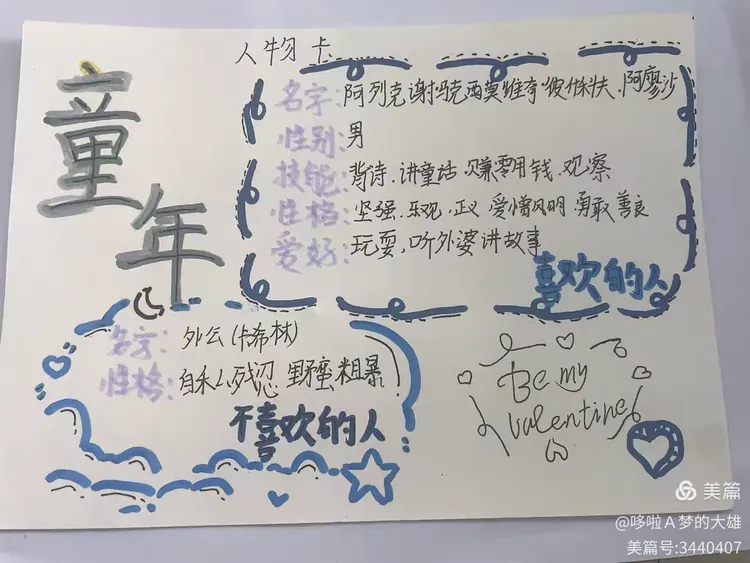 童年
人物卡
名字:阿列克谢·马克西莫维奇·彼什科夫、阿廖沙
性别:男
技能:背诗、讲童话、赚零用钱、观察
性格:坚强、乐观、正义 爱憎风明 勇敢善良
爱好:玩耍,听外婆讲故事
喜欢的人
名字:外公(卡希林)
性格:自私、残忍 野蛮粗暴
不喜欢的人
Be my
Valentine
美篇
@哆啦A梦的大雄
美篇号:3440407